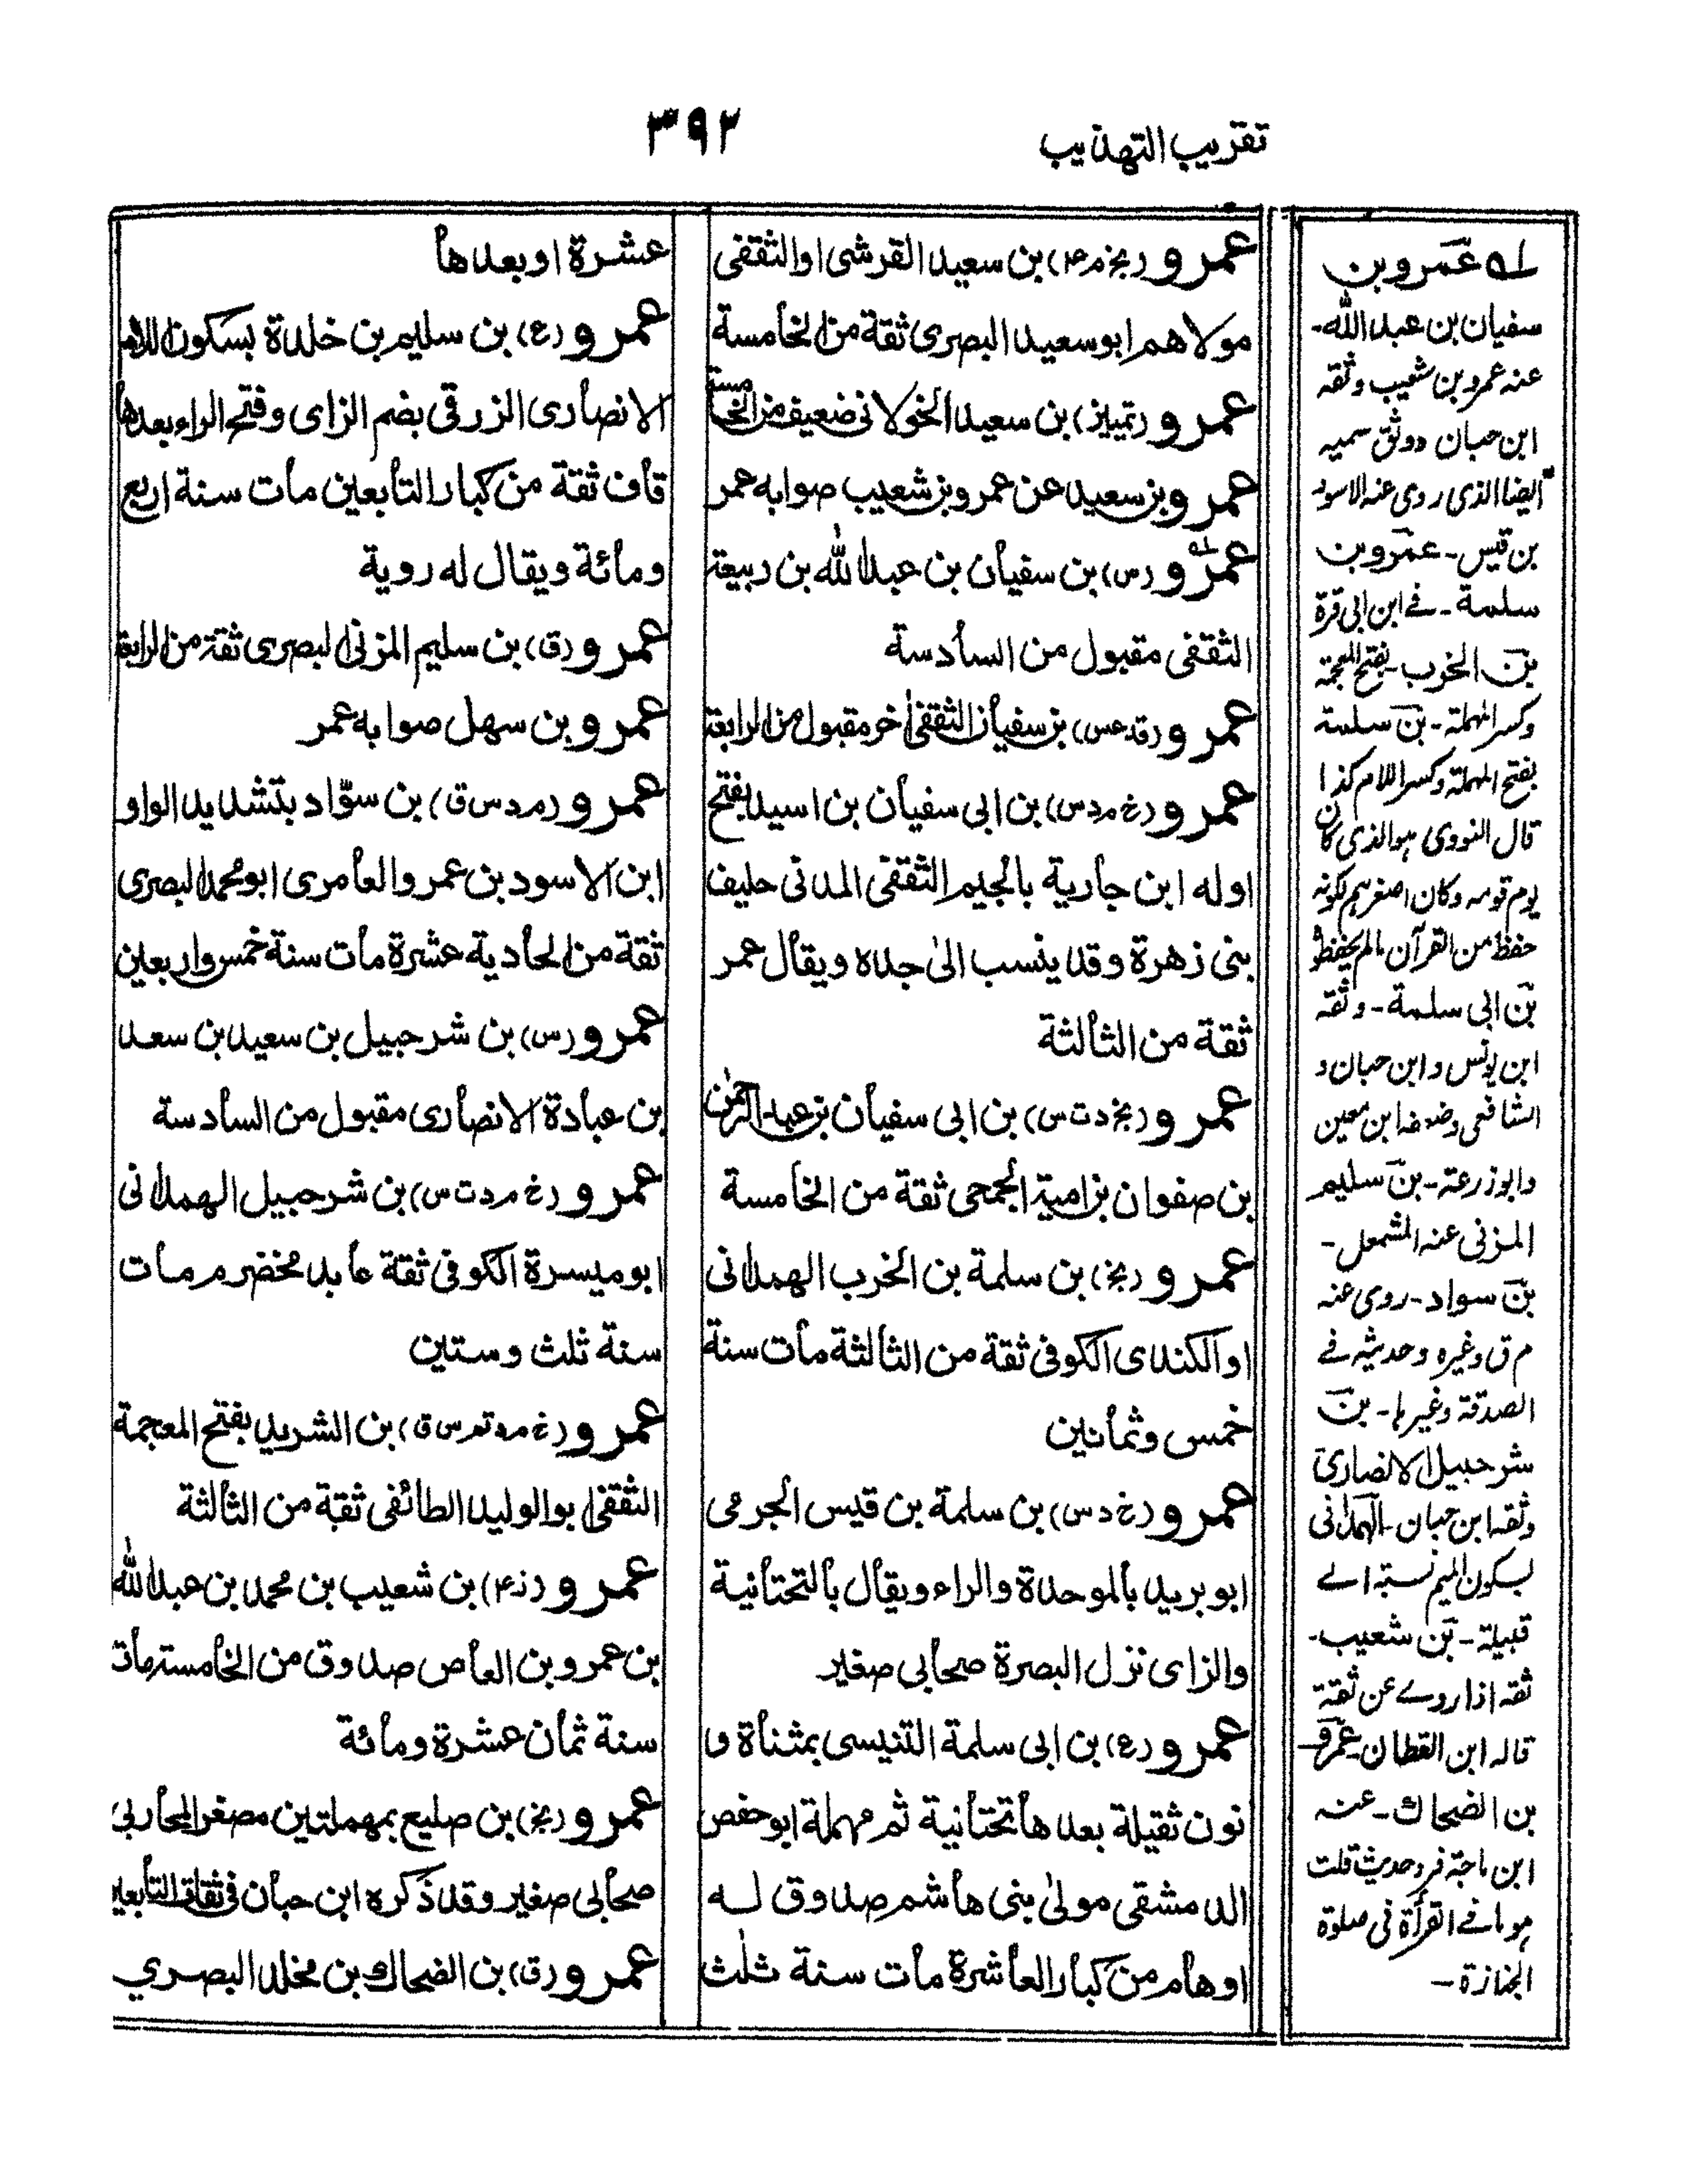 تقريب التهذيب
٣٩٢
عمرو (بخ م ۴) بن سعيد القرشى او الثقفى
مولاهم ابو سعيد البصرى ثقة من الخامسة
عمرو (تمييز) بن سعيد الخولانى ضعيف من الخامسة
عمرو بن سعيد عن عمرو بن شعيب صوابه عمر
عمرو (س) بن سفيان بن عبد الله بن ربيعة
الثقفى مقبول من السادسة
عمرو (قد عس) بن سفيان الثقفى اخر مقبول من الرابعة
عمرو (خ م د س) بن ابى سفيان بن اسيد بفتح
اوله ابن جارية بالجيم الثقفى المدنى حليف
بنى زهرة وقد ينسب الىٰ جده ويقال عمر
ثقة من الثالثة
عمرو (بخ د ت س) بن ابى سفيان بن عبد الرحمٰن
بن صفوان بن امية الجمحى ثقة من الخامسة
عمرو (بخ) بن سلمة بن الخرب الهمدانى
او الكندى الكوفى ثقة من الثالثة مات سنة
خمس وثمانين
عمرو (خ د س) بن سلمة بن قيس الجرمى
ابو بريد بالموحدة والراء ويقال بالتحتانية
والزاى نزل البصرة صحابى صغير
عمرو (ع) بن ابى سلمة التنيسى بمثناة و
نون ثقيلة بعدها تحتانية ثم مهملة ابو حفص
الدمشقى مولىٰ بنى هاشم صدوق له
اوهام من كبار العاشرة مات سنة ثلٰث
عشرة او بعدها
عمرو (ع) بن سليم بن خلدة بسكون اللام
الانصارى الزرقى بضم الزاى وفتح الراء بعدها
قاف ثقة من كبار التابعين مات سنة اربع
ومائة ويقال له روية
عمرو (ق) بن سليم المزنى البصرى ثقة من الرابعة
عمرو بن سهل صوابه عمر
عمرو (م د س ق) بن سوّاد بتشديد الواو
ابن الاسود بن عمرو العامرى ابو محمد البصرى
ثقة من الحادية عشرة مات سنة خمس واربعين
عمرو (س) بن شرحبيل بن سعيد بن سعد
بن عبادة الانصارى مقبول من السادسة
عمرو (خ م د ت س) بن شرحبيل الهمدانى
ابو ميسرة الكوفى ثقة عابد مخضرم مات
سنة ثلث وستين
عمرو (خ م د تم س ق) بن الشريد بفتح المعجمة
الثقفى ابو الوليد الطائفى ثقة من الثالثة
عمرو (ز ۴) بن شعيب بن محمد بن عبد الله
بن عمرو بن العاص صدوق من الخامسة مات
سنة ثمان عشرة ومائة
عمرو (بخ) بن صليع بمهملتين مصغر المحاربى
صحابى صغير وقد ذكره ابن حبان فى ثقات التابعين
عمرو (ق) بن الضحاك بن مخلد البصري
له عمرو بن
سفيان بن عبد الله-
عنه عمرو بن شعيب وثقه
ابن حبان دوثق سميه
ايضا الذى روى عنه الاسود
بن قيس- عمرو بن
سلمة- فے ابن ابى قرة
بن الخرب- بفتح المعجمة
وكسر المهملة- بن سلمة
بفتح المهملة وكسر اللام كذا
قال النووى هو الذى كان
يوم قومه وكان اصغرهم لكونه
حفظ من القرآن مالم يحفظوا
بن ابى سلمة- وثقه
ابن يونس وابن حبان و
الشافعى وضعفه ابن معين
وابو زرعة- بن سليم
المزنى عنه المشمعل-
بن سواد- روى عنه
م ق وغيره وحديثه فے
الصدقة وغيرها- بن
شرحبيل الانصارى
وثقه ابن حبان- الهمدانى
بسكون الميم نسبة الے
قبيلة- بن شعيب-
ثقه اذا روے عن ثقة
قاله ابن القطان- عمرو
بن الضحاك- عنه
ابن ماجة فرد حديث قلت
هو ما فے القرأة فى صلوة
الجنازة-